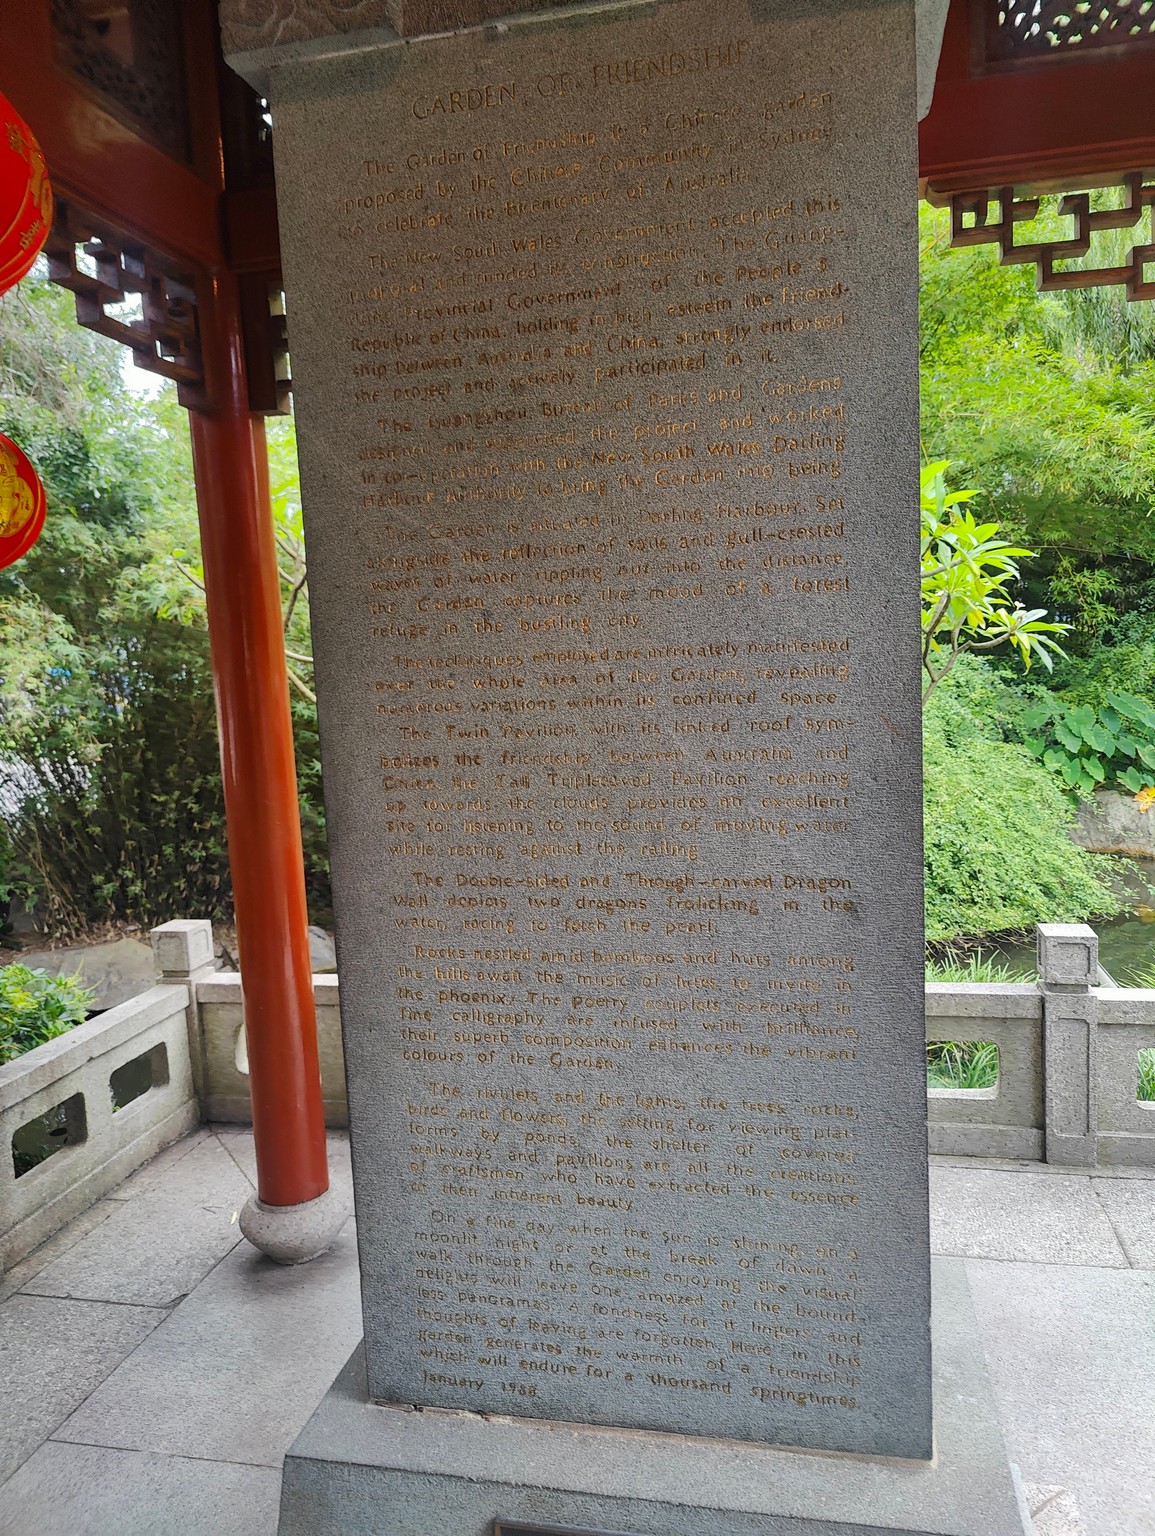 GARDEN OF FRIENDSHIP
The Garden of Friendship is a Chinese garden
proposed by the Chinese Community in Sydney
to celebrate the Bicentenary of Australia.
The New South Wales Government accepted this
proposal and funded its construction. The Guang-
dong Provincial Government of the People's
Republic of China, holding in high esteem the friend-
ship between Australia and China, strongly endorsed
the project and actively participated in it.
The Guangzhou Bureau of Parks and Gardens
designed and supervised the project and worked
in co-operation with the New South Wales Darling
Harbour Authority to bring the Garden into being
The Garden is situated in Darling Harbour. Set
alongside the reflection of sails and gull-crested
waves of water rippling out into the distance,
the Garden captures the mood of a forest
refuge in the bustling city.
The techniques employed are intricately manifested
over the whole area of the Garden, revealing
numerous variations within its confined space.
The Twin Pavilion with its linked roof sym-
bolizes the friendship between Australia and
China, the Tall Tripleeaved Pavilion reaching
up towards the clouds provides an excellent
site for listening to the sound of moving water
while resting against the railing
The Double-sided and Through-carved Dragon
Wall depicts two dragons frolicking in the
water, racing to fetch the pearl.
Rocks nestled amid bamboos and huts among
the hills await the music of flutes to invite in
the phoenix. The poetry couplets executed in
fine calligraphy are infused with brilliance,
their superb composition enhances the vibrant
colours of the Garden.
The rivulets and the lights, the trees, rocks,
birds and flowers, the setting for viewing plat-
forms by ponds, the shelter of covered
walkways and pavilions are all the creations
of craftsmen who have extracted the essence
of their inherent beauty.
On a fine day when the sun is shining, on a
moonlit night or at the break of dawn, a
walk through the Garden enjoying the visual
delights will leave one amazed at the bound-
less panoramas. A fondness for it lingers and
thoughts of leaving are forgotten. Here in this
garden generates the warmth of a friendship
which will endure for a thousand springtimes.
January 1988